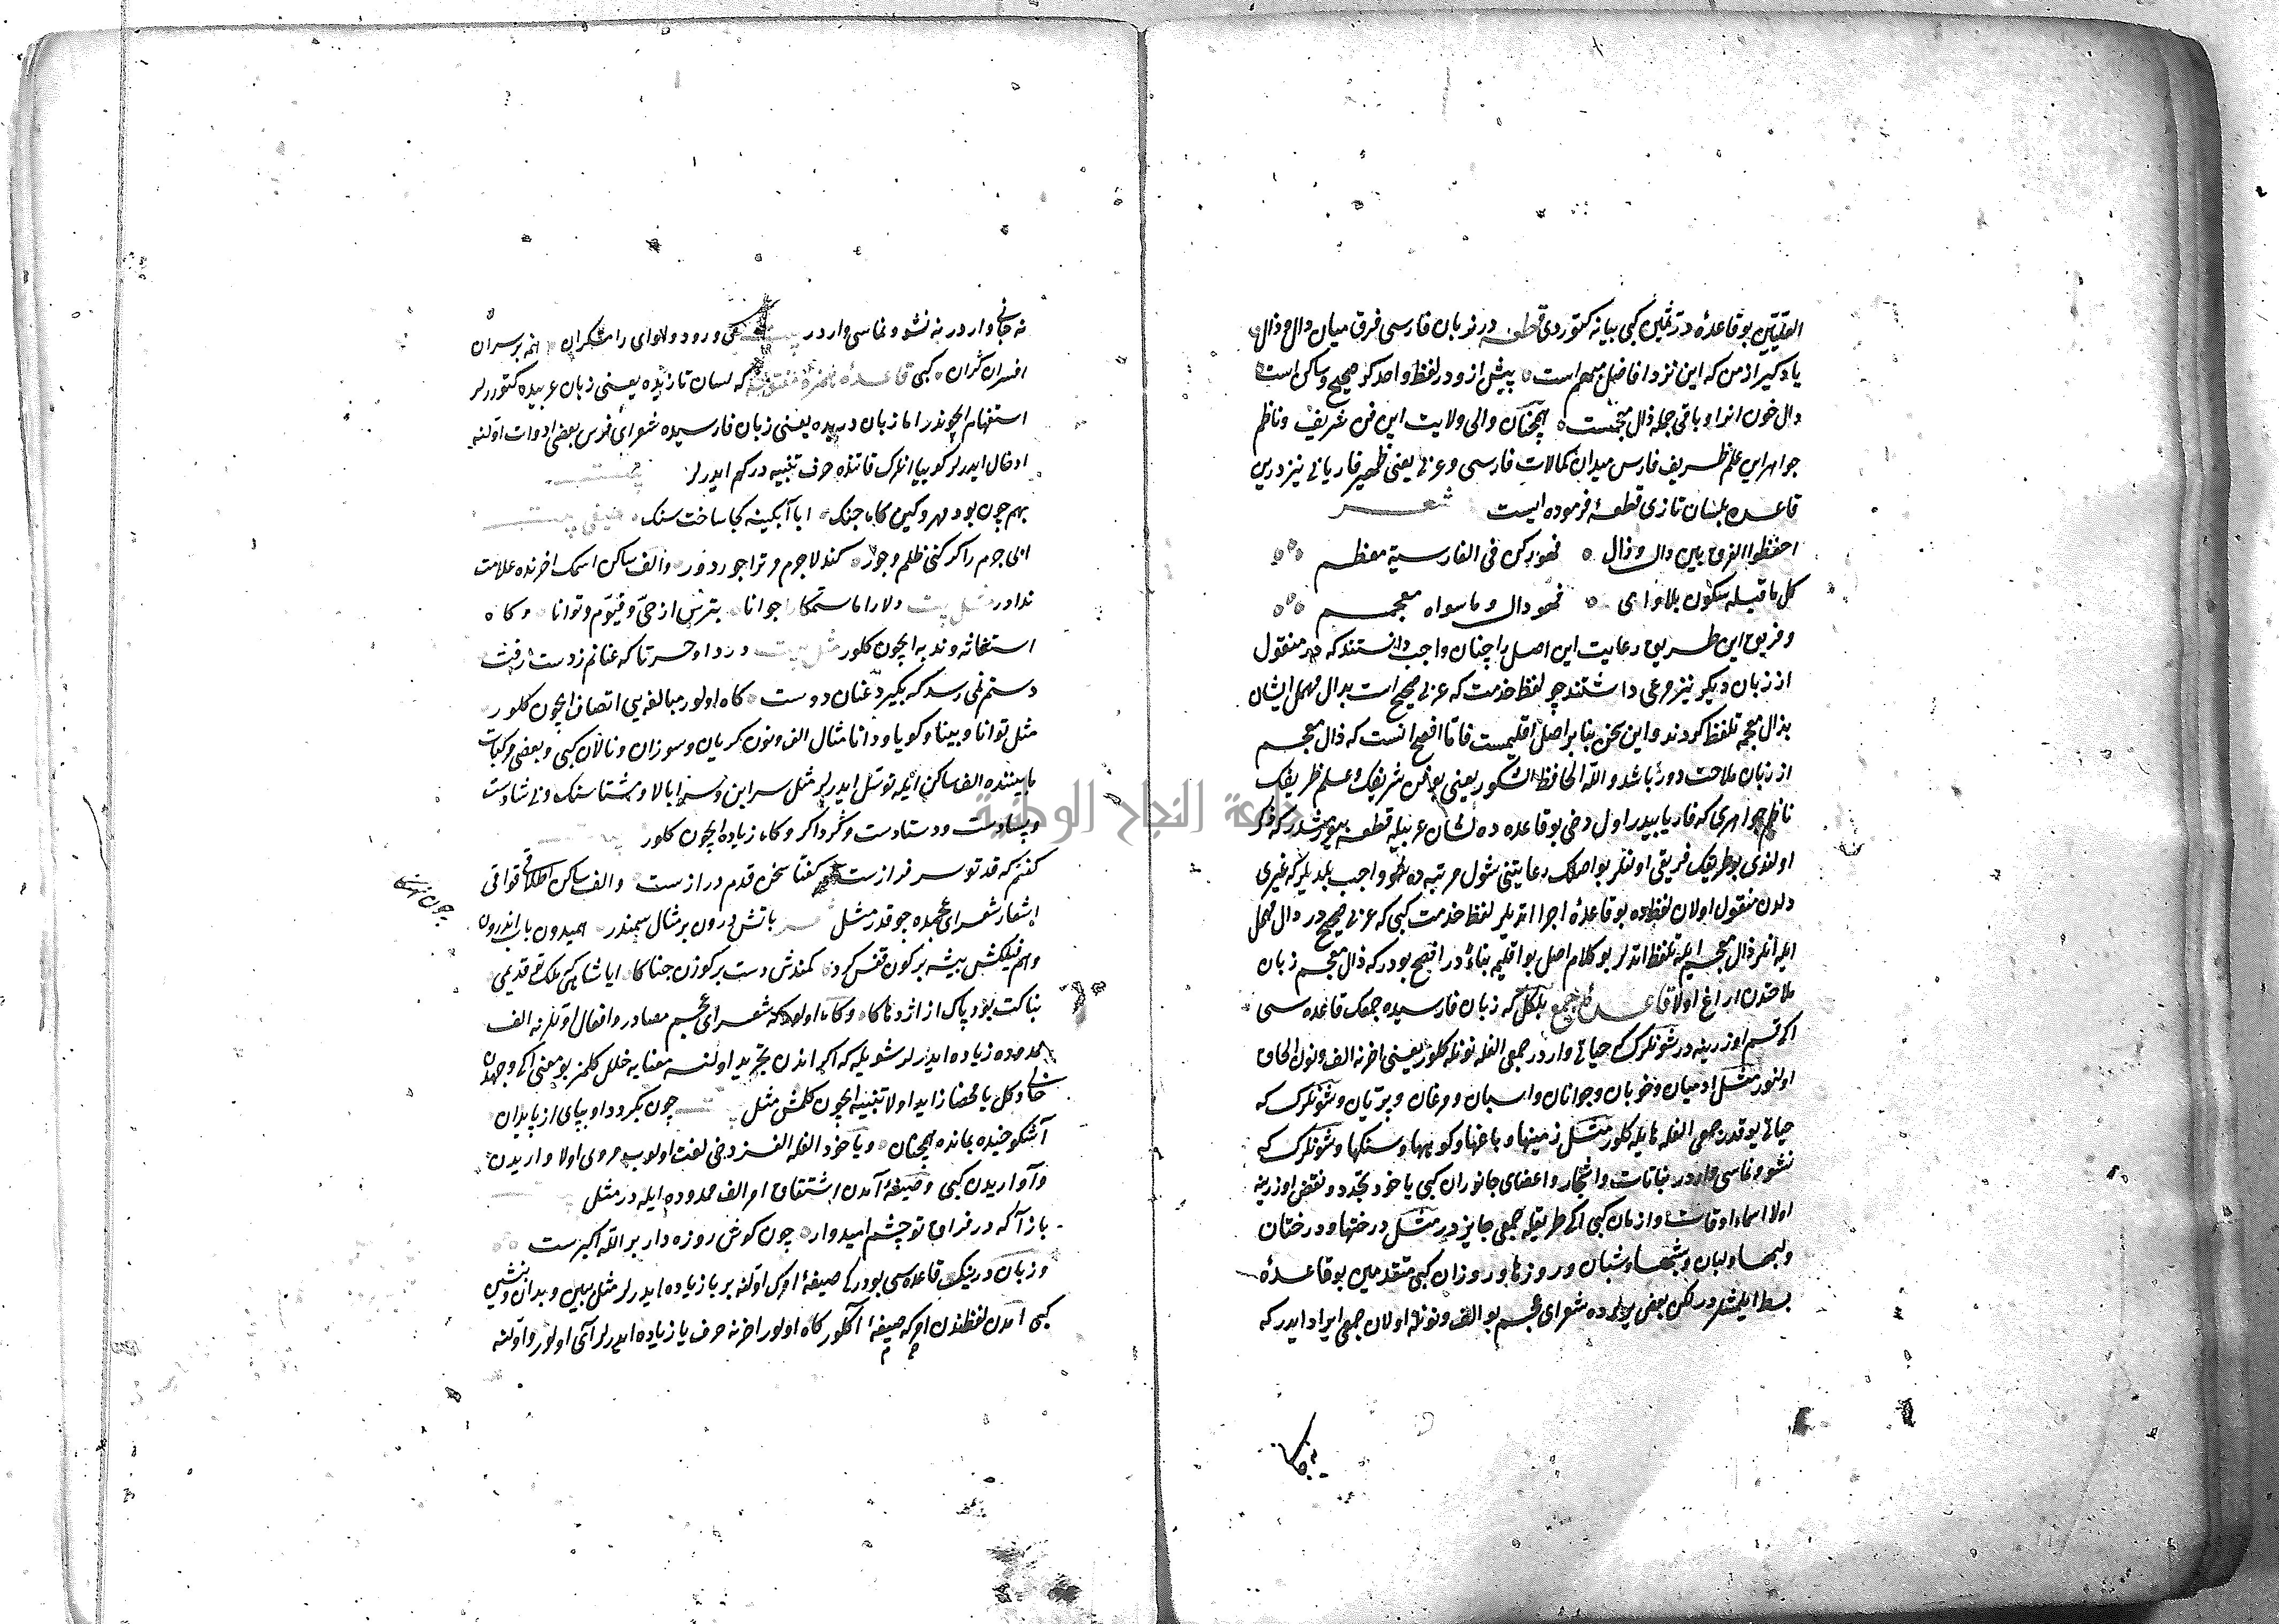 القلتین بو قاعدهٔ در ثمین کبی بیانه کتوردی قطعه در زبان فارسی فرق میان دال و ذال
یاد کیر از من که این نزد افاضل مبهم است پیش ازو در لفظ واحد کر صحیح و ساکن است
دال خون انرا و باقی جمله ذال معجمست همچنان والی ولایت این فن شریف و ناظم
جواهر این علم ظریف فارس میدان کمالات فارسی و عربی یعنی ظهیر فاریابی نیز درین
قاعده بلسان تازی قطعهٔ فرموده ایست شعر
احفظوا الفرق بین دال و ذال فهو رکن فی الفارسیة معظم
کل ما قبله سکون بلا وای فهو دال و ما سواه معجم
و فریق این طریق رعایت این اصل را چنان واجب دانستند که در منقول
از زبان دیکر نیز مرعی داشتند چو لفظ خدمت که عربی صحیح است بدال مهمل ایشان
بذال معجمه تلفظ کردند و این سخن بنا بر اصل اقلیمست فاما افصح انست که ذال معجم
از زبان ملاحت دور باشد والله الحافظ الشکور یعنی بو فن شریفک و علم ظریفک
ناظم جواهری که فاریابیدر اول دخی بو قاعده ده لسان عربیله قطعه بیورمشدر که ذکر
اولندی بو طریقک فریقی اونلر بو اصلک رعایتنی شول مرتبه ده واجب بلدیلر که غیری
دلدن منقول اولان لفظده بو قاعدهٔ اجرا اتدیلر لفظ خدمت کبی که عربی صحیح در دال مهمل
ایله انلر ذال معجم ایله تلفظ اتدلر بو کلام اصل بو اقلیم بناءً در افصح بودر که ذال معجم زبان
ملاحتدن ایراغ اولا قاعدهٔ جمع بلکل که زبان فارسیده جمعک قاعده سی
ایکی قسم اوزرینه در شونکرک که حیاتی وار در جمعی الفله نونله کلور یعنی اخرنه الف و نون الحاق
اولنور مثل ادمیان و خوبان و جوانان و اسبان و مرغان و پریان و شونکرک که
حیاتی یوقدر جمعی الفله هایله کلور مثل زمینها و باغها و کوهها و سنکها و شونکرک که
نشو و نماسی وار در نباتات و اشجار و اعضای جانوران کبی یا خود تجدد و نقض اوزرینه
اولا اسماء اوقات و ازمان کبی ایکی طریقله جمعی جایز در مثل درختها و درختان
و لبها و لبان و شبها و شبان و روزها و روزان کبی متقدمین بو قاعدهٔ
بسط ایلمشلر در لکن بعض یرلرده شعرای عجم بو الف و نونله اولان جمعی ایراد ایدر که
نه جانی وار در نه نشو و نماسی وار در کی ورود و لاوای رامشکران همه بر سران
افسران کران کبی قاعدهٔ همزهٔ مفتوحه که لسان تازیده یعنی زبان عربیده کتوررلر
استفهام ایچوندر اما زبان دریده یعنی زبان فارسیده شعرای فرس بعض ادوات اولنه
ادخال ایدرلر کوییا انلرک قاتنده حرف تنبیه در کم ایدرلر
بهم چون بود مهر و کین کاه جنک ابا آبکینه کجا ساخت سنک
ابی جرم را کر کنی ظلم و جور کند لاجرم مر ترا جور دور و الف ساکن اسمک اخرنده علامت
ندادر مثل بیت دلارا ما ستمکارا جوانا بترس از حیّ و قیّوم و توانا و کاه
استغاثه و ندبه ایچون کلور مثل بیت دردا و حسرتا که عنانم ز دست رفت
دستم نمی رسد که بکیرد عنان دوست کاه اولور مبالغه یی اتصاف ایچون کلور
مثل توانا و بینا و کویا و دانا مثال الف و نون کریان و سوزان و نالان کبی و بعضی مرکبات
مابیننده الف ساکن ایله توسل ایدرلر مثل سراین و سرابالا و مشتا سنک
و پسادست و دستادست و کرداکرد و کاه زیاده ایچون کلور
کفتم که قد تو سرفرازست کفتا سخن قدم درازست و الف ساکن اطلاقی قوافی
اشعار شعرای عجمده چوقدر مثل باتش درون بر مثال سمندر همیدون باب اندرون
چون نهنکا
کمندش دشت بر کوزن جنا کاه ایا شاهی که ملک تو قدیمی
نیاکت بود پاک از اژدها کا و کاه اولور که شعرای عجم مصادر و افعال اوّلرنه الف
ممدوده زیاده ایدرلر شویله که اکر اندن تجرید اولنسه معنایه خلل کلمز بو معنی ایکی وجهدن
خالی دکل یا محضا زاید اولا تنبیه ایچون کلمش مثل چون بکردد او بپای از پایدان
آشکوخیده بمانده همچنان و یا خود الفله الفسز دخی لغت اولوب مروی اولا واریدن
و آواریدن کبی و صیغهٔ آمدن اشتقاق امر الف ممدوده ایله در مثل
باز آکه در فراق تو چشم امیدوار چون کوش روزه دار بر الله اکبرست
و زبان درینک قاعده سی بودر که صیغهٔ امرک اولنه بر با زیاده ایدرلر مثل ببین و بدان و بنشین
کبی آمدن لفظندن امر که صیغهٔ آ کلور کاه اولور اخرنه حرف یا زیاده ایدرلر آی اولور و اولنه